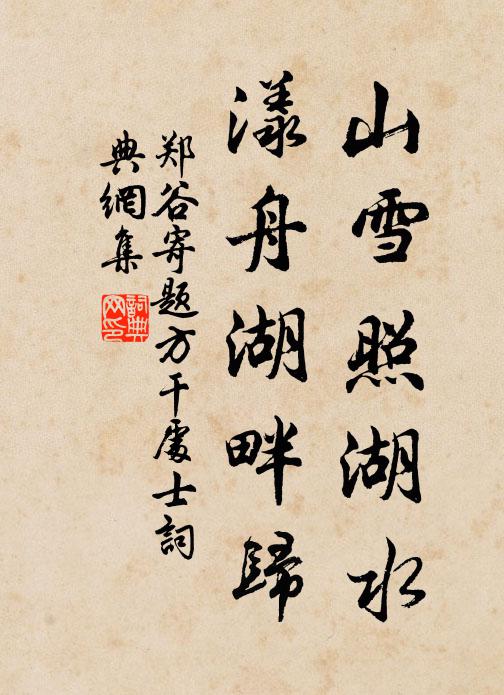 山雪照湖水
漾舟湖畔歸
郑谷寄題方干處士詞
典網集
詞典網印